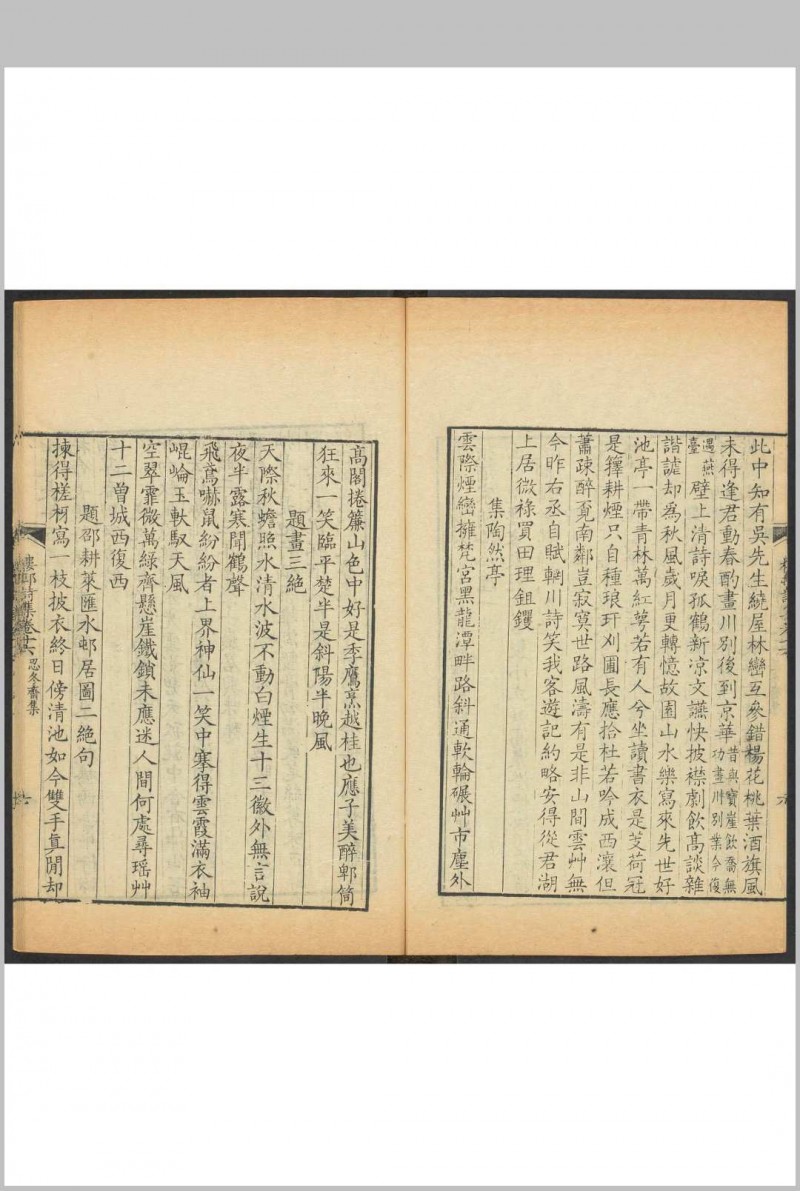 此中知有吳先生繞屋林巒互參錯楊花桃葉酒旗風
未得逢君動春酌畫川別後到京華昔與寶崖飲喬無功畫川別業今復
遇燕臺壁上清詩唳孤鶴新凉文讌快披襟劇飲高談雜
諧謔却為秋風歲月更轉憶故園山水樂寫來先世好
池亭一帶青林萬紅萼若有人兮坐讀書衣是芰荷冠
是籜耕煙只自種琅玕刈圃長應拾杜若吟成西瀼但
蕭疎醉覓南鄰豈寂寞世路風濤有是非山間雲艸無
今昨右丞自賦輞川詩笑我客遊記約略安得從君湖
上居微祿買田理鉏钁
集陶然亭
雲際煙巒擁梵宮黑龍潭畔路斜通軟輪碾艸市塵外
高閣捲簾山色中好是季鷹烹越桂也應子美醉郫筒
狂來一笑臨平楚半是斜陽半晚風
題畫三絶
天際秋蟾照水清水波不動白煙生十三徽外無言說
夜半露寒聞鶴聲
飛鳶嚇鼠紛紛者上界神仙一笑中搴得雲霞滿衣袖
崐崘玉軑馭天風
空翠霏微萬綠齊懸崖鐵鎖未應迷人間何處尋瑶艸
十二曾城西復西
題邵耕萊匯水邨居圖二絶句
樓邨詩集卷十六 忍冬齋集
揀得槎枒寫一枝披衣終日傍清池如今雙手真閒却